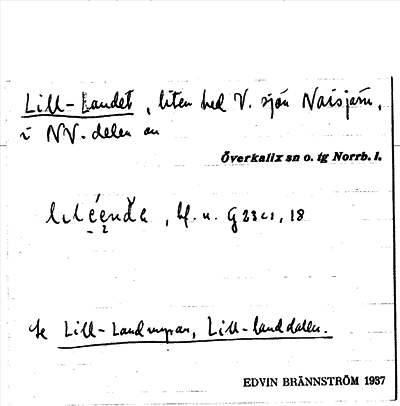 Lill-Landet, liten hed V. sjön Naisjärv,
i NV. delen av
Överkalix sn o. tg Norrb. l.
H. u. G 23 c1, 18
Se Lill-Landmyran, Lill-landdalen.
EDVIN BRÄNNSTRÖM 1937